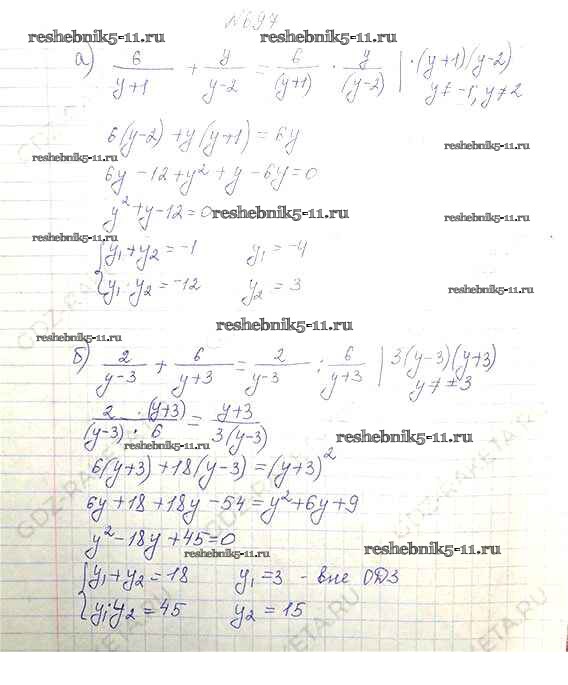 №697
reshebnik5-11.ru reshebnik5-11.ru
а) 6/(y+1) + y/(y-2) = 6/(y+1) · y/(y-2) | ·(y+1)(y-2)
y≠-1; y≠2
6(y-2)+y(y+1)=6y
reshebnik5-11.ru reshebnik5-11.ru
6y-12+y²+y-6y=0
y²+y-12=0 reshebnik5-11.ru reshebnik5-11.ru
reshebnik5-11.ru
{y₁+y₂=-1 y₁=-4
{y₁·y₂=-12 y₂=3 reshebnik5-11.ru
reshebnik5-11.ru
reshebnik5-11.ru
б) 2/(y-3) + 6/(y+3) = 2/(y-3) : 6/(y+3) | 3(y-3)(y+3)
y≠±3
2·(y+3)/((y-3)·6) = (y+3)/(3(y-3))
reshebnik5-11.ru reshebnik5-11.ru
6(y+3)+18(y-3)=(y+3)²
6y+18+18y-54=y²+6y+9
y²-18y+45=0
reshebnik5-11.ru reshebnik5-11.ru
{y₁+y₂=18 y₁=3 - вне ОДЗ
{y₁·y₂=45 y₂=15
reshebnik5-11.ru reshebnik5-11.ru
GDZ-RAKETA.RU